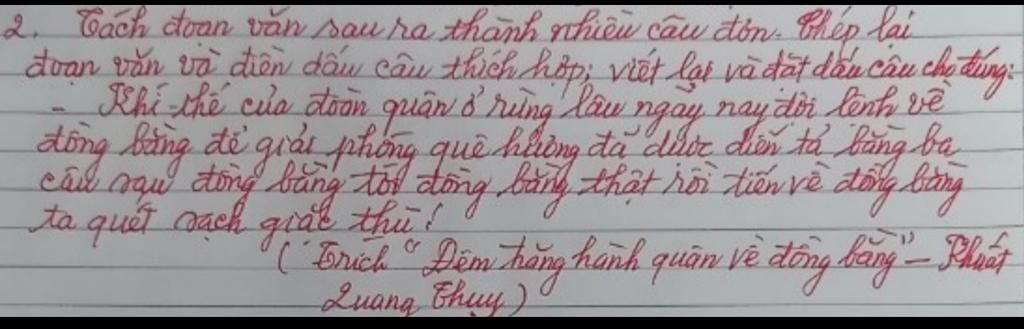 2. Tách đoạn văn sau ra thành nhiều câu đơn. Chép lại
đoạn văn và điền dấu câu thích hợp; viết lại và đặt dấu câu cho đúng:
- Khí thế của đoàn quân ở rừng lâu ngày nay dời lệnh về
đồng bằng để giải phóng quê hương đã được diễn tả bằng ba
câu sau đồng bằng tới đồng bằng thật rồi tiến về đồng bằng
ta quét sạch giặc thù!
(Trích "Đêm trăng hành quân về đồng bằng" - Khuất
Quang Thụy)